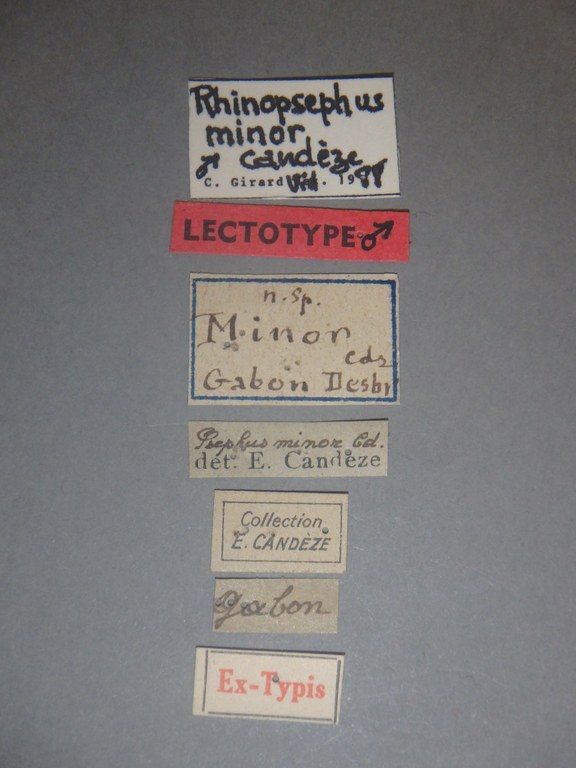 Rhinopsephus
minor
♂ Candèze
C. Girard Vid. 19
LECTOTYPE ♂
n. sp.
Minor
Cdz
Gabon Desbr
Psephus minor Cd.
dét. E. Candèze
Collection
E. CANDÈZE
Gabon
Ex-Typis